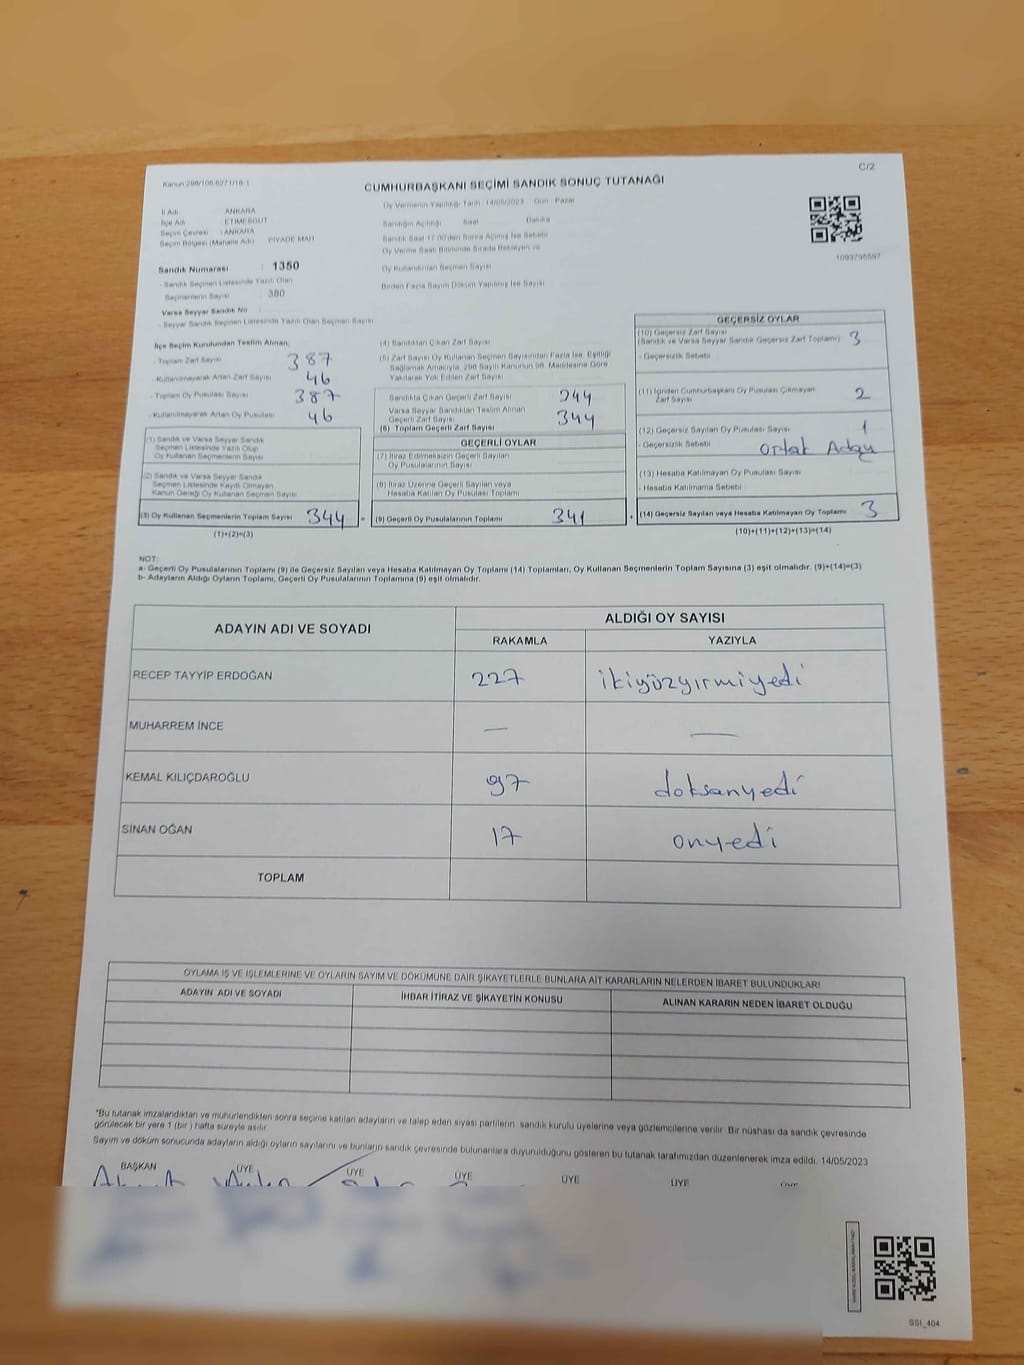 C/2
Kanun:298/105.6271/18.1
CUMHURBAŞKANI SEÇİMİ SANDIK SONUÇ TUTANAĞI
İl Adı ANKARA
İlçe Adı ETİMESGUT
Seçim Çevresi : ANKARA
Seçim Bölgesi (Mahalle Adı) PİYADE MAH
Sandık Numarası : 1350
- Sandık Seçmen Listesinde Yazılı Olan
Seçmenlerin Sayısı : 380
Varsa Seyyar Sandık No
- Seyyar Sandık Seçmen Listesinde Yazılı Olan Seçmen Sayısı
Oy Vermenin Yapıldığı Tarih 14/05/2023 Gün : Pazar
Sandığın Açıldığı Saat Dakika
Sandık Saat 17.00'den Sonra Açılmış İse Sebebi
Oy Verme Saati Bitiminde Sırada Bekleyen ve
Oy Kullandırılan Seçmen Sayısı
Birden Fazla Sayım Döküm Yapılmış İse Sayısı
1093795597
İlçe Seçim Kurulundan Teslim Alınan;
- Toplam Zarf Sayısı 387
- Kullanılmayarak Artan Zarf Sayısı 46
- Toplam Oy Pusulası Sayısı 387
- Kullanılmayarak Artan Oy Pusulası 46
(1) Sandık ve Varsa Seyyar Sandık
Seçmen Listesinde Yazılı Olup
Oy Kullanan Seçmenlerin Sayısı
(2) Sandık ve Varsa Seyyar Sandık
Seçmen Listesinde Kayıtlı Olmayan
Kanun Gereği Oy Kullanan Seçmen Sayısı
(3) Oy Kullanan Seçmenlerin Toplam Sayısı 344
(1)+(2)=(3)
(4) Sandıktan Çıkan Zarf Sayısı
(5) Zarf Sayısı Oy Kullanan Seçmen Sayısından Fazla İse, Eşitliği
Sağlamak Amacıyla, 298 Sayılı Kanunun 98. Maddesine Göre
Yakılarak Yok Edilen Zarf Sayısı
Sandıkta Çıkan Geçerli Zarf Sayısı 344
Varsa Seyyar Sandıktan Teslim Alınan
Geçerli Zarf Sayısı 344
(6) Toplam Geçerli Zarf Sayısı
GEÇERLİ OYLAR
(7) İtiraz Edilmeksizin Geçerli Sayılan
Oy Pusulalarının Sayısı
(8) İtiraz Üzerine Geçerli Sayılan veya
Hesaba Katılan Oy Pusulası Toplamı
= (9) Geçerli Oy Pusulalarının Toplamı 341 +
GEÇERSİZ OYLAR
(10) Geçersiz Zarf Sayısı
(Sandık ve Varsa Seyyar Sandık Geçersiz Zarf Toplamı) 3
- Geçersizlik Sebebi
(11) İçinden Cumhurbaşkanı Oy Pusulası Çıkmayan
Zarf Sayısı 2
(12) Geçersiz Sayılan Oy Pusulası Sayısı 1
- Geçersizlik Sebebi Ortak Aday
(13) Hesaba Katılmayan Oy Pusulası Sayısı
- Hesaba Katılmama Sebebi
(14) Geçersiz Sayılan veya Hesaba Katılmayan Oy Toplamı 3
(10)+(11)+(12)+(13)=(14)
NOT:
a- Geçerli Oy Pusulalarının Toplamı (9) ile Geçersiz Sayılan veya Hesaba Katılmayan Oy Toplamı (14) Toplamları, Oy Kullanan Seçmenlerin Toplam Sayısına (3) eşit olmalıdır. (9)+(14)=(3)
b- Adayların Aldığı Oyların Toplamı, Geçerli Oy Pusulalarının Toplamına (9) eşit olmalıdır.
ADAYIN ADI VE SOYADI
ALDIĞI OY SAYISI
RAKAMLA YAZIYLA
RECEP TAYYİP ERDOĞAN 227 ikiyüzyirmiyedi
MUHARREM İNCE — —
KEMAL KILIÇDAROĞLU 97 doksanyedi
SİNAN OĞAN 17 onyedi
TOPLAM
OYLAMA İŞ VE İŞLEMLERİNE VE OYLARIN SAYIM VE DÖKÜMÜNE DAİR ŞİKAYETLERLE BUNLARA AİT KARARLARIN NELERDEN İBARET BULUNDUKLARI
ADAYIN ADI VE SOYADI İHBAR İTİRAZ VE ŞİKAYETİN KONUSU ALINAN KARARIN NEDEN İBARET OLDUĞU
*Bu tutanak imzalandıktan ve mühürlendikten sonra seçime katılan adayların ve talep eden siyasi partilerin sandık kurulu üyelerine veya gözlemcilerine verilir. Bir nüshası da sandık çevresinde
görülecek bir yere 1 (bir) hafta süreyle asılır.
Sayım ve döküm sonucunda adayların aldığı oyların sayılarını ve bunların sandık çevresinde bulunanlara duyurulduğunu gösteren bu tutanak tarafımızdan düzenlenerek imza edildi. 14/05/2023
BAŞKAN ÜYE ÜYE ÜYE ÜYE ÜYE ÜYE
SSI_404